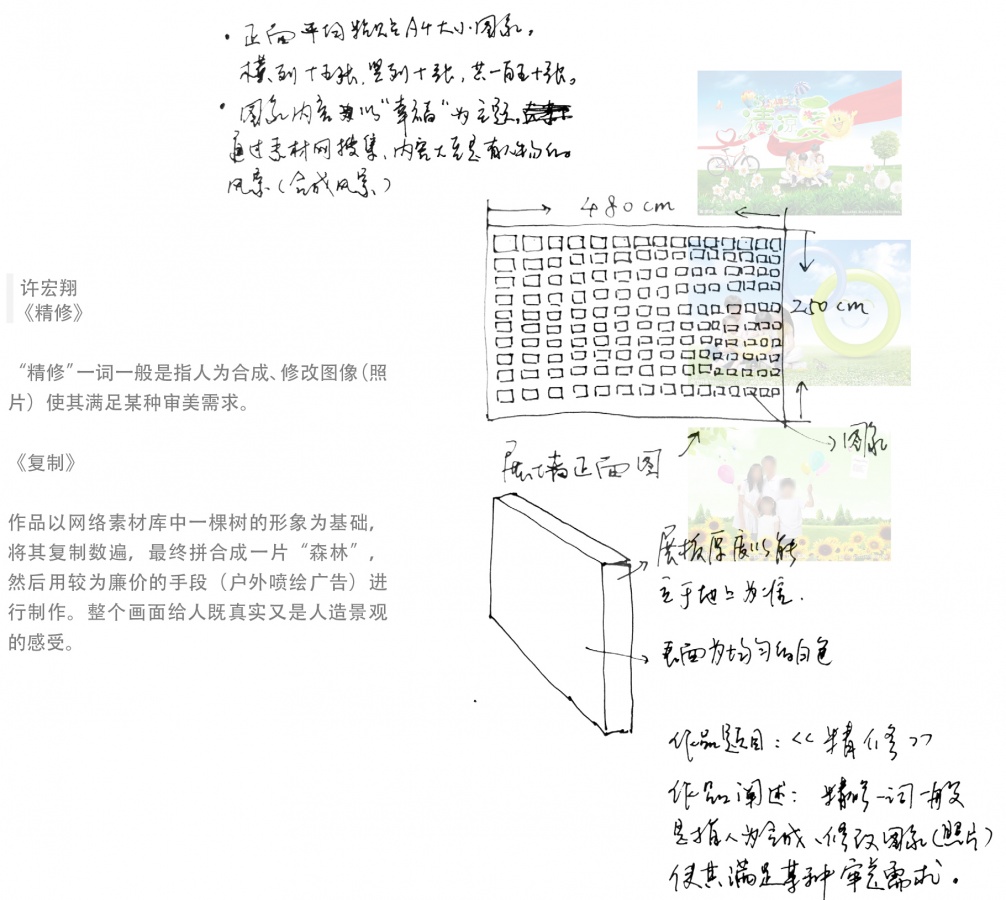 • 正面平均粘贴A4大小图象。
横列十五张，竖列十张，共一百五十张。
• 图象内容为以“幸福”为主题。
通过素材网搜集、内容大至是有人物的
风景(合成风景)
480cm
250cm
图象
展墙正面图
许宏翔
《精修》
“精修”一词一般是指人为合成、修改图像（照
片）使其满足某种审美需求。
《复制》
作品以网络素材库中一棵树的形象为基础，
将其复制数遍，最终拼合成一片“森林”，
然后用较为廉价的手段（户外喷绘广告）进
行制作。整个画面给人既真实又是人造景观
的感受。
展板厚度以能
立于地上为准.
表面为均匀的白色
作品题目：<<精修>>
作品阐述：精修一词一般
是指人为合成、修改图象(照片)
使其满足某种审美需求。